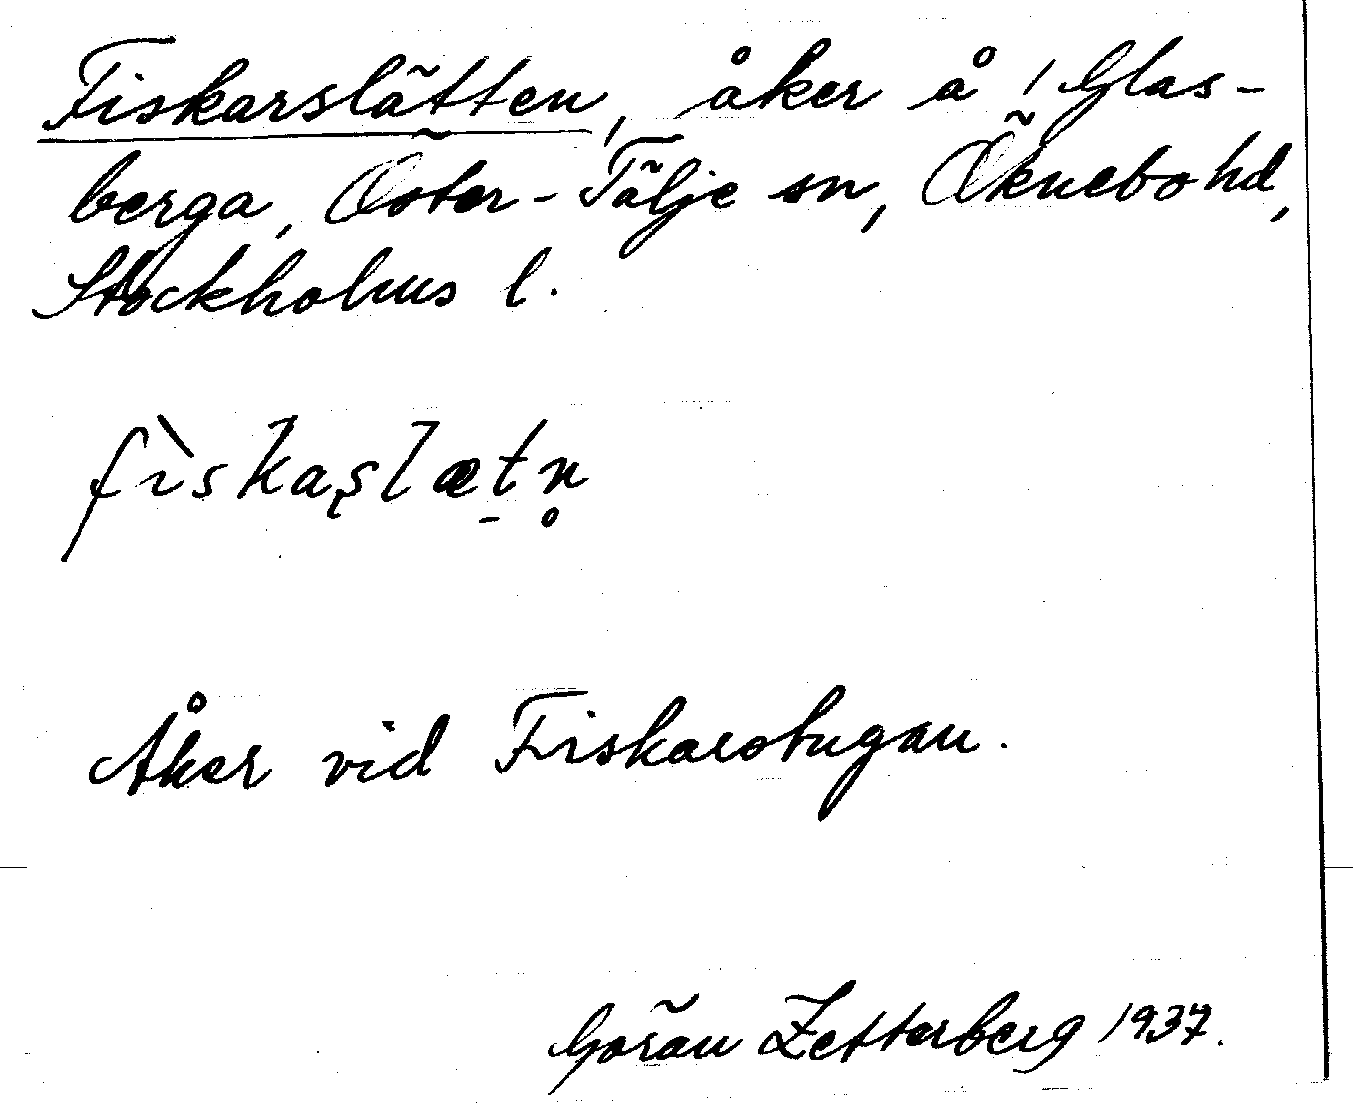 Fiskarslätten, åker å ! Glas-
berga, Öster-Tälje sn, Öknebo hd,
Stockholms l.
fìskaʂlætn̥
Åker vid Fiskarstugan.
Göran Zetterberg 1937.